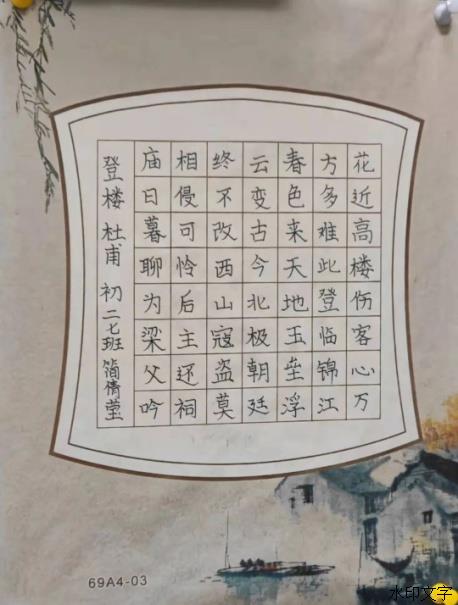 花近高楼伤客心万
方多难此登临锦江
春色来天地玉垒浮
云变古今北极朝廷
终不改西山寇盗莫
相侵可怜后主还祠
庙日暮聊为梁父吟
登楼 杜甫 初二七班 简倩莹
69A4-03
水印文字